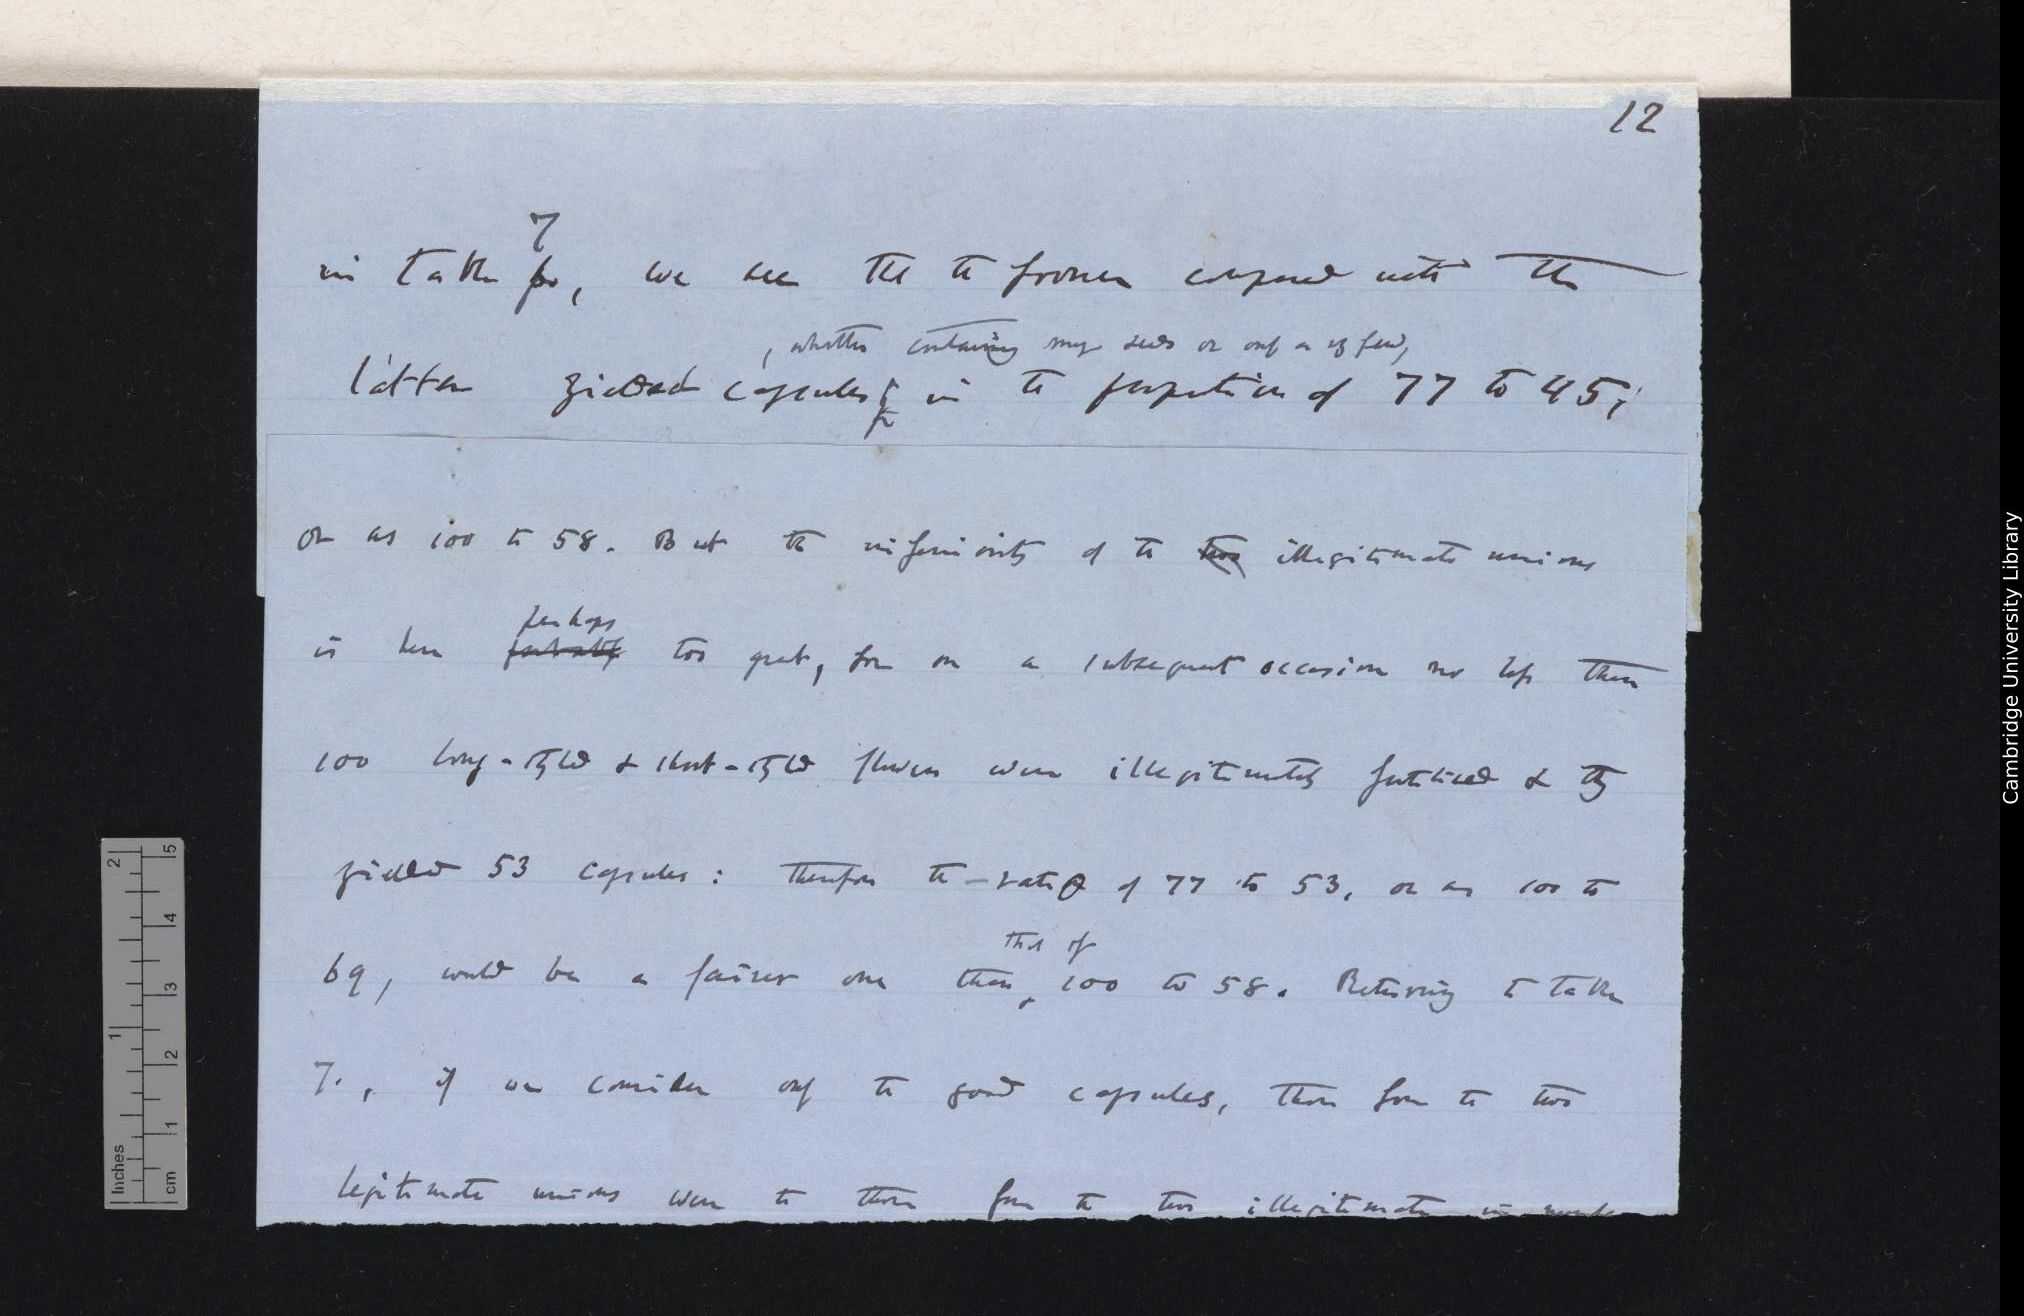 12
7
in table for, we see that the former compared with the
, whether containing many seeds or only a very few,
latter yielded capsules in the proportion of 77 to 45;
or as 100 to 58. But the inferiority of the two illegitimate unions
perhaps
is here probably too great, for on a subsequent occasion no less than
100 long-styled & short-styled flowers were illegitimately fertilised & they
yielded 53 capsules: therefore the ratio of 77 to 53, or as 100 to
that of
69, would be a fairer one than 100 to 58. Returning to table
7., if we consider only the good capsules, those from the two
legitimate unions were to those from the two illegitimate in number
Inches 1 2
cm 1 2 3 4 5
Cambridge University Library